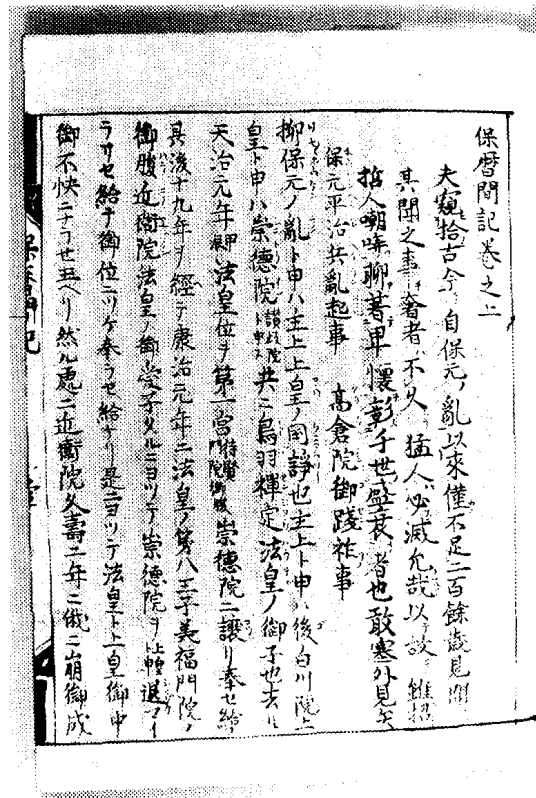 保暦間記巻之上
夫窺拾古今自保元ノ亂以來僅不足二百餘歳見聞
其聞之事奢者不久猛人必滅允哉以設雖招
哲人嘲哢聊著卑懷彰于世盛衰者也敢塞外見矣
保元平治兵亂起事 高倉院御踐祚事
抑保元ノ亂ト申ハ主上上皇ノ国諍也主上ト申ハ後白川院上
皇ト申ハ崇德院讃岐院ト申ス共ニ鳥羽禪定法皇ノ御子也去ル
天治元年甲辰法皇位ヲ第一宮待賢門院御腹崇德院ニ譲リ奉セ給
其後十九年ヲ經テ康治元年ニ法皇ノ第八王子美福門院ノ
御腹近衛院法皇ノ御愛子タルニヨツテ崇德院ヲ退
ラサセ給テ御位ニツケ奉ラセ給ケリ是ニヨツテ法皇ト上皇御中
御不快ニナラせ玉ヘリ然ル處ニ近衛院久壽二年ニ俄ニ崩御成
保暦間記